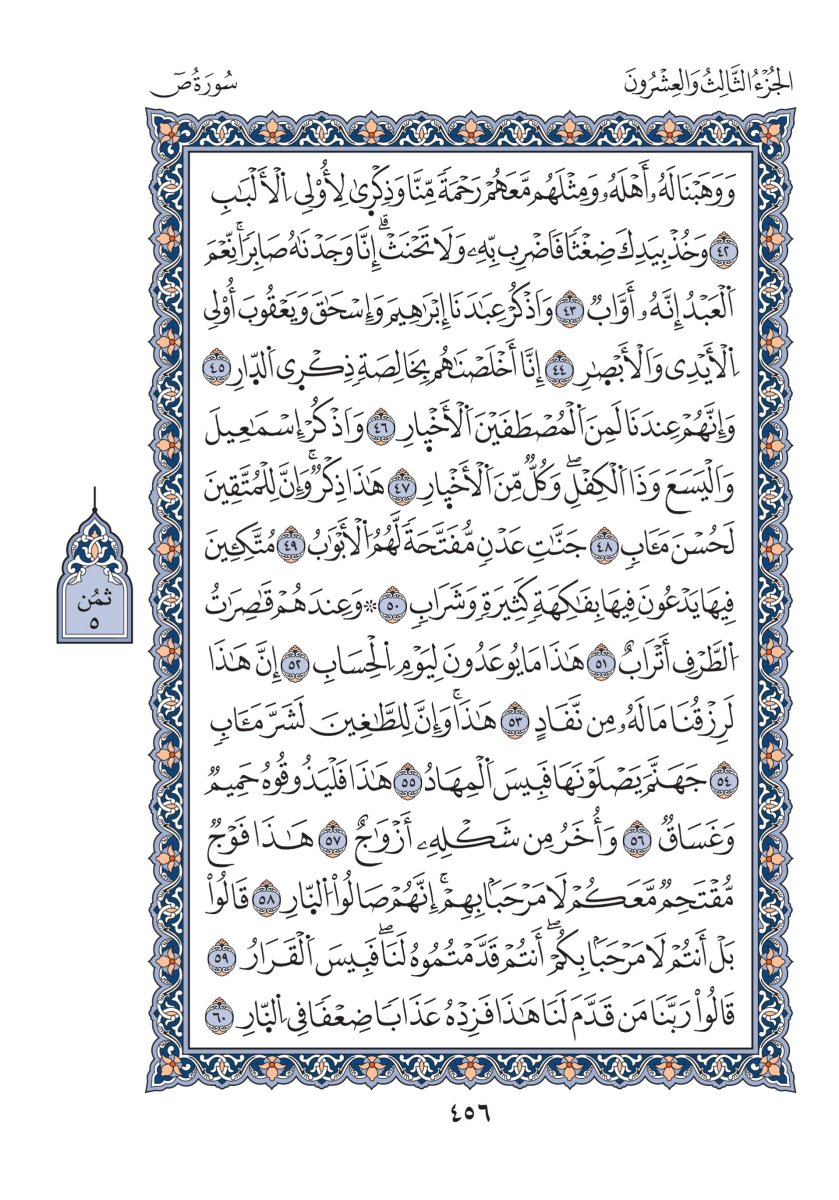 الجُزْءُ الثَّالِثُ وَالعِشْرُونَ
سُورَةُ صٓ
وَوَهَبْنَا لَهُۥٓ أَهْلَهُۥ وَمِثْلَهُم مَّعَهُمْ رَحْمَةٗ مِّنَّا وَذِكْر۪يٰ لِأُوْلِي اِ۬لْأَلْبَٰبِ
٤٢ وَخُذْ بِيَدِكَ ضِغْثٗا فَاضْرِب بِّهِۦ وَلَا تَحْنَثْۗ إِنَّا وَجَدْنَٰهُ صَابِرٗاۚ نِّعْمَ
اَ۬لْعَبْدُ إِنَّهُۥٓ أَوَّابٞ ٤٣ وَاَذْكُرْ عِبَٰدَنَا إِبْرَٰهِيمَ وَإِسْحَٰقَ وَيَعْقُوبَ أُوْلِي
اِ۬لْأَيْدِي وَالْأَبْصٰ۪رِ ٤٤ إِنَّا أَخْلَصْنَٰهُم بِخَالِصَةٖ ذِكْرَي اَ۬لدّ۪ارِ ٤٥
وَإِنَّهُمْ عِندَنَا لَمِنَ اَ۬لْمُصْطَفَيْنَ اَ۬لْأَخْي۪ارِ ٤٦ وَاَذْكُرْ إِسْمَٰعِيلَ
وَالْيَسَعَ وَذَا اَ۬لْكِفْلِۖ وَكُلّٞ مِّنَ اَ۬لْأَخْي۪ارِ ٤٧ هَٰذَا ذِكْرٞۚ وَإِنَّ لِلْمُتَّقِينَ
لَحُسْنَ مَـَٔابٖ ٤٨ جَنَّٰتِ عَدْنٖ مُّفَتَّحَةٗ لَّهُمُ اُ۬لْأَبْوَٰبُ ٤٩ مُتَّكِـِٔينَ
فِيهَا يَدْعُونَ فِيهَا بِفَٰكِهَةٖ كَثِيرَةٖ وَشَرَابٖ ٥٠ ۞ وَعِندَهُمْ قَٰصِرَٰتُ
اُ۬لطَّرْفِ أَتْرَابٌ ٥١ هَٰذَا مَا يُوعَدُونَ لِيَوْمِ اِ۬لْحِسَابِ ٥٢ إِنَّ هَٰذَا
لَرِزْقُنَا مَا لَهُۥ مِن نَّفَادٍ ٥٣ هَٰذَاۚ وَإِنَّ لِلطَّٰغِينَ لَشَرَّ مَـَٔابٖ
٥٤ جَهَنَّمَ يَصْلَوْنَهَا فَبِيسَ اَ۬لْمِهَادُ ٥٥ هَٰذَا فَلْيَذُوقُوهُ حَمِيمٞ
وَغَسَاقٞ ٥٦ وَأُخَرُ مِن شَكْلِهِۦٓ أَزْوَٰجٌ ٥٧ هَٰذَا فَوْجٞ
مُّقْتَحِمٞ مَّعَكُمْ لَا مَرْحَبَۢا بِهِمْۚ إِنَّهُمْ صَالُواْ اُ۬لنّ۪ارِ ٥٨ قَالُواْ
بَلْ أَنتُمْ لَا مَرْحَبَۢا بِكُمْۖ أَنتُمْ قَدَّمْتُمُوهُ لَنَاۖ فَبِيسَ اَ۬لْقَرَارُ ٥٩
قَالُواْ رَبَّنَا مَن قَدَّمَ لَنَا هَٰذَا فَزِدْهُ عَذَابٗا ضِعْفٗا فِي اِ۬لنّ۪ارِ ٦٠
ثمُن
٥
٤٥٦